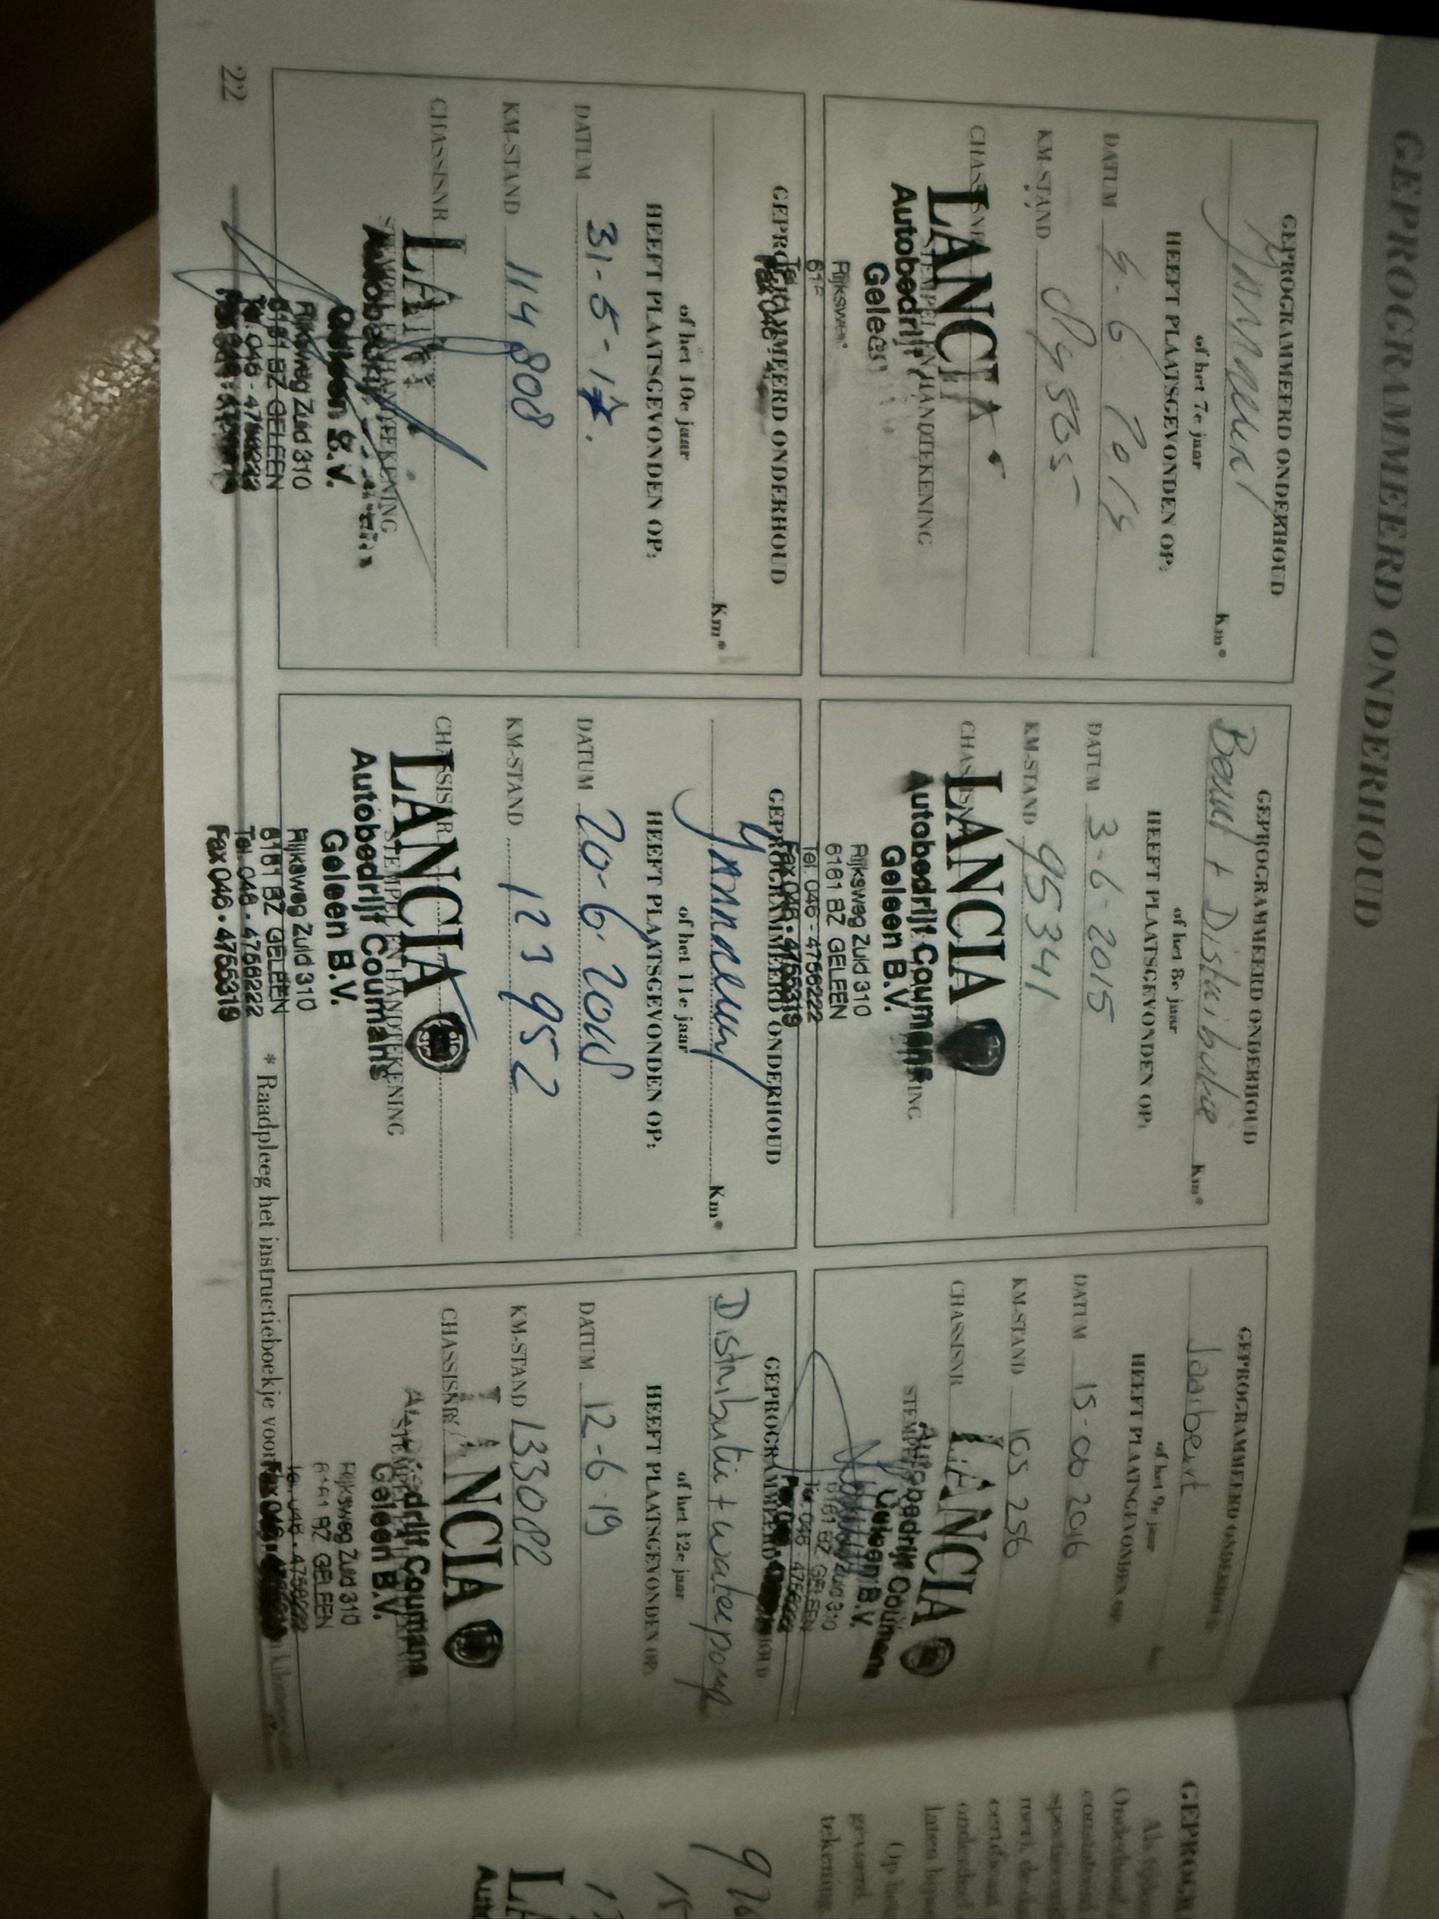 GEPROGRAMMEERD ONDERHOUD
GEPROGRAMMEERD ONDERHOUD
Km*
of het 7e jaar
HEEFT PLAATSGEVONDEN OP:
DATUM
KM-STAND
CHASSISNR
LANCIA
STEMPEL EN HANDTEKENING
Autobedrijf
Geleen
Rijksweg
Tel.
Fax 046
GEPROGRAMMEERD ONDERHOUD
Beurt + Distributie Km*
of het 8e jaar
HEEFT PLAATSGEVONDEN OP:
DATUM 3-6-2015
KM-STAND 95341
CHASSISNR
LANCIA
Autobedrijf Coumans
Geleen B.V.
Rijksweg Zuid 310
6161 BZ GELEEN
Tel. 046 - 4756222
Fax 046 - 4755319
GEPROGRAMMEERD ONDERHOUD
of het 9e jaar
HEEFT PLAATSGEVONDEN OP:
DATUM 15-06 2016
KM-STAND 105 256
CHASSISNR
LANCIA
Autobedrijf Coumans
Geleen B.V.
Zuid 310
6161 BZ GELEEN
Tel. 046 - 4756222
GEPROGRAMMEERD ONDERHOUD
Km*
of het 10e jaar
HEEFT PLAATSGEVONDEN OP:
DATUM 31-5-17.
KM-STAND 114808
CHASSISNR
STEMPEL EN HANDTEKENING
Autobedrijf
Geleen B.V.
Rijksweg Zuid 310
6161 BZ GELEEN
Tel. 046 - 4756222
GEPROGRAMMEERD ONDERHOUD
Km*
of het 11e jaar
HEEFT PLAATSGEVONDEN OP:
DATUM 20-6-2018
KM-STAND 123952
CHASSISNR
LANCIA
STEMPEL EN HANDTEKENING
Autobedrijf Coumans
Geleen B.V.
Rijksweg Zuid 310
6161 BZ GELEEN
Tel. 046 - 4756222
Fax 046 - 4755319
GEPROGRAMMEERD ONDERHOUD
Distributie + waterpomp
of het 12e jaar
HEEFT PLAATSGEVONDEN OP:
DATUM 12-6-19
KM-STAND 133082
CHASSISNR
LANCIA
Autobedrijf Coumans
Geleen B.V.
Rijksweg Zuid 310
6161 BZ GELEEN
Tel. 046 - 4756222
Fax 046
* Raadpleeg het instructieboekje voor
22
GEPROGR
Als
Op
tekening